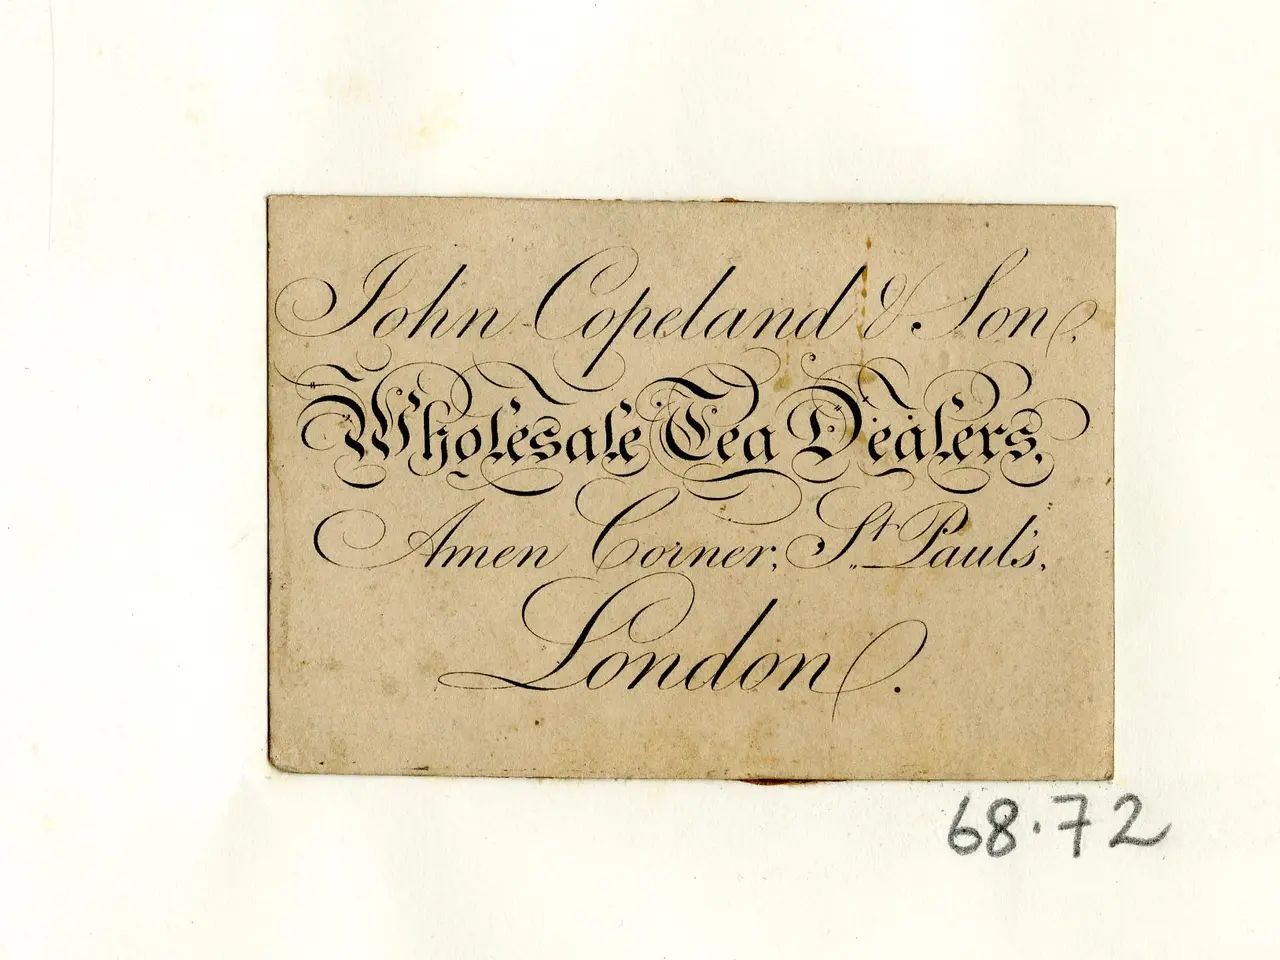 John Copeland & Son,
Wholesale Tea Dealers,
Amen Corner, St. Paul's,
London.
68.72